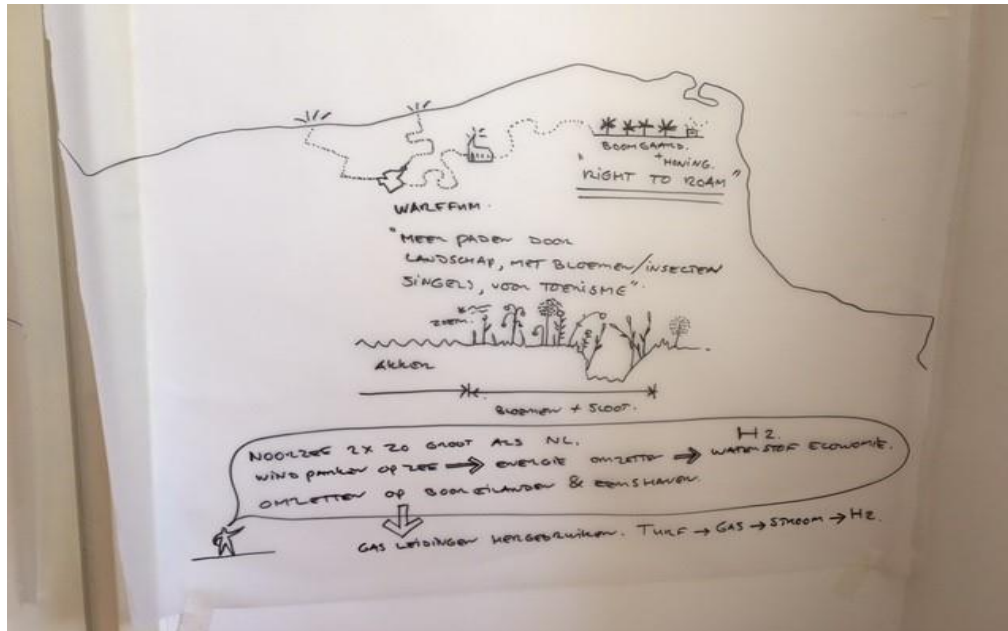 BOOMGAARD.
+ HONING.
"RIGHT TO ROAM"
WARFFUM.
"MEER PADEN DOOR
LANDSCHAP, MET BLOEMEN/INSECTEN
SINGELS, VOOR TOERISME".
ZOEM.
AKKER
BLOEMEN + SLOOT.
NOORZEE 2X ZO GROOT ALS NL.
H2.
WIND PARKEN OP ZEE ⇒ ENERGIE OMZETTEN ⇒ WATERSTOF ECONOMIE.
OMZETTEN OP BOOREILANDEN & EEMSHAVEN.
GAS LEIDINGEN HERGEBRUIKEN. TURF → GAS → STROOM → H2.